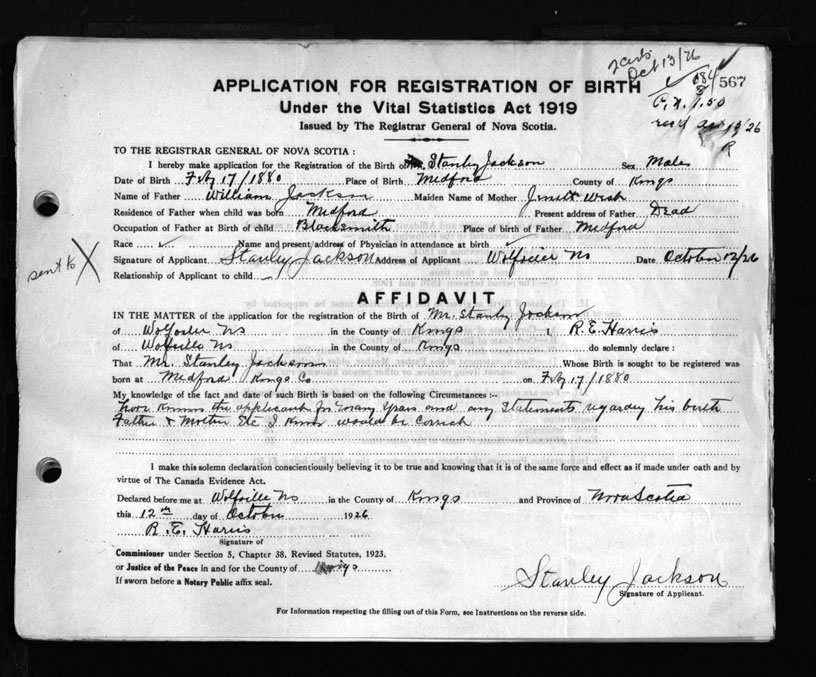 Oct 13/26
567
APPLICATION FOR REGISTRATION OF BIRTH
Under the Vital Statistics Act 1919
1.50
Issued by The Registrar General of Nova Scotia.
13/26
R
TO THE REGISTRAR GENERAL OF NOVA SCOTIA :
I hereby make application for the Registration of the Birth of Stanley Jackson Sex Male
Date of Birth Feby 17/1880 Place of Birth Medford County of Kings
Name of Father William Jackson Maiden Name of Mother
Residence of Father when child was born Medford Present address of Father Dead
Occupation of Father at Birth of child Blacksmith Place of birth of Father Medford
Race Name and present address of Physician in attendance at birth
Signature of Applicant Stanley Jackson Address of Applicant Wolfville NS Date October 12/26
sent to X
Relationship of Applicant to child
AFFIDAVIT
IN THE MATTER of the application for the registration of the Birth of Mr. Stanley Jackson
of Wolfville NS in the County of Kings I, R.E. Harris
of Wolfville NS. in the County of Kings do solemnly declare :
That Mr. Stanley Jackson Whose Birth is sought to be registered was
born at Medford Kings Co on Feby 17/1880
My knowledge of the fact and date of such Birth is based on the following Circumstances :-
have known the applicant for many years and any statements regarding his birth
Father & Mother Etc I know would be correct
I make this solemn declaration conscientiously believing it to be true and knowing that it is of the same force and effect as if made under oath and by
virtue of The Canada Evidence Act.
Declared before me at Wolfville NS in the County of Kings and Province of Nova Scotia
this 12th day of October 1926
R. E. Harris
Signature of
Commissioner under Section 5, Chapter 38, Revised Statutes, 1923.
or Justice of the Peace in and for the County of Kings
If sworn before a Notary Public affix seal.
Stanley Jackson
Signature of Applicant.
For Information respecting the filling out of this Form, see Instructions on the reverse side.